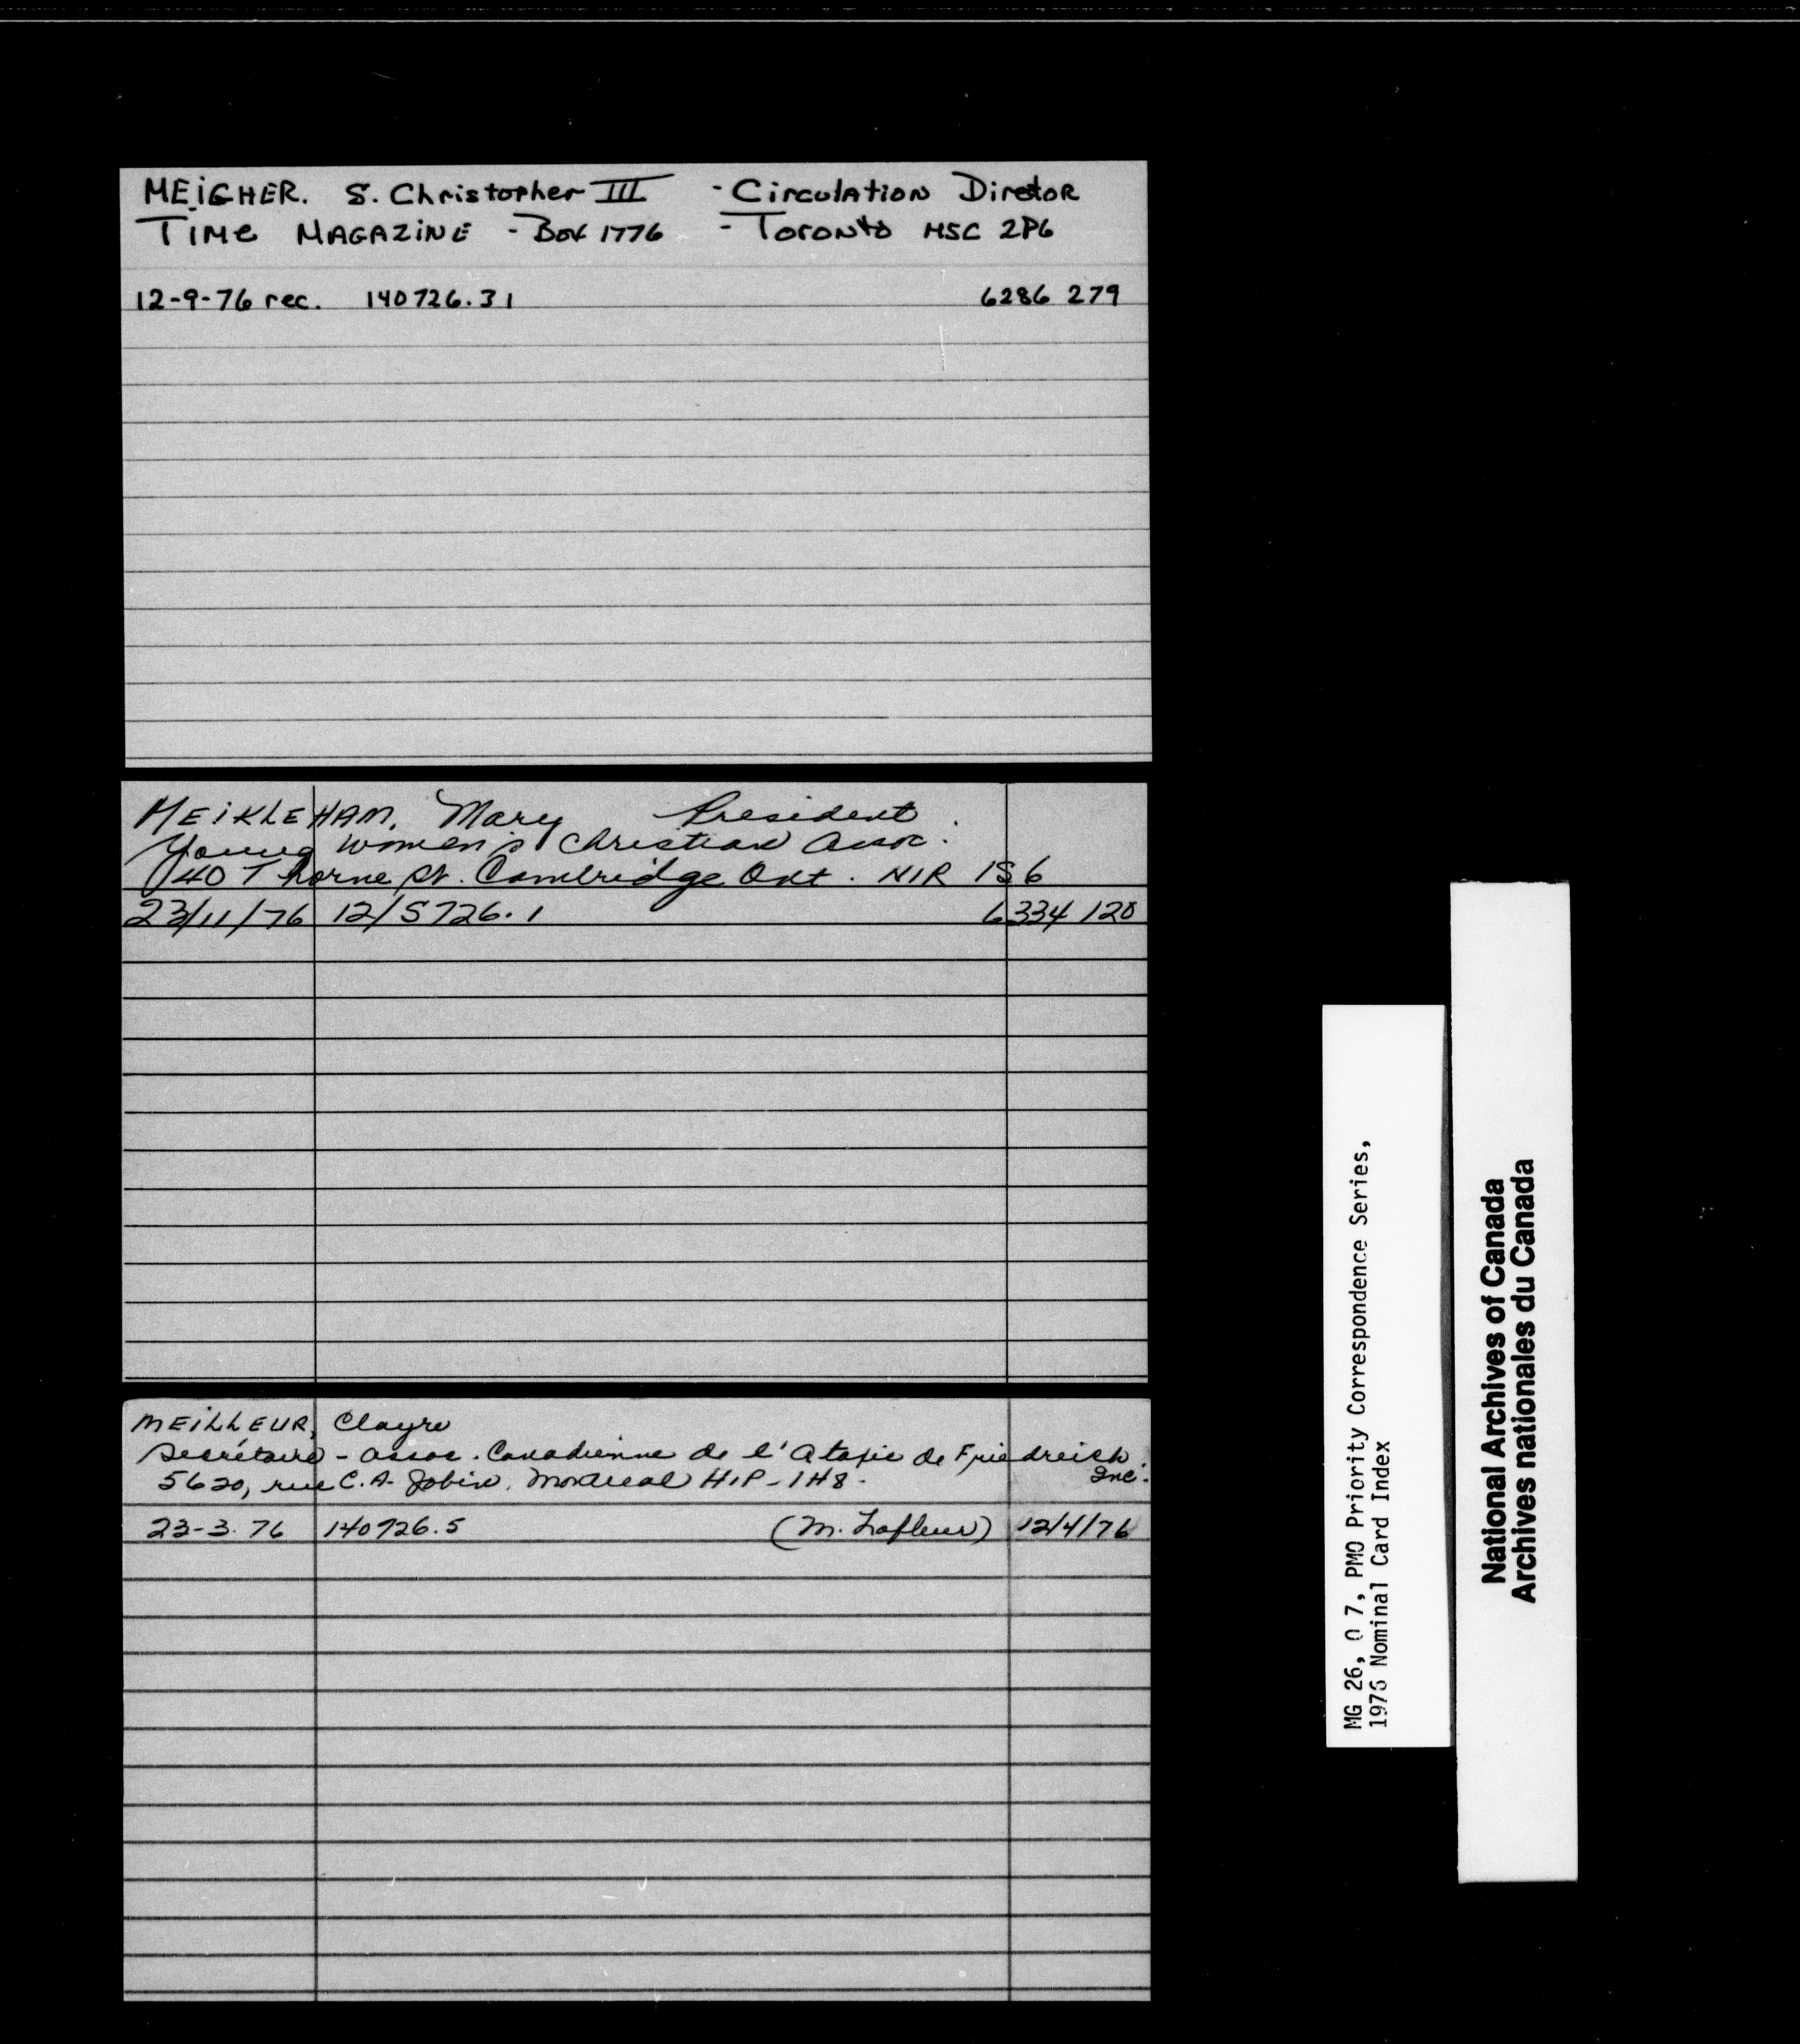 MEIGHER. S. Christopher III - Circulation Diretor
Time MAGAZINE - Box 1776 - Toronto M5C 2P6
12-9-76 rec. 140726.31 6286 279
MEIKLEHAM, Mary President
Young Women's Christian Assoc.
40 Thorne St. Cambridge Ont. N1R 1S6
23/11/76 12/5726.1 6334 120
MEILLEUR, Clayre
Secrétaire - Assoc. Canadienne de l'Ataxie de Friedreich
Inc.
5620, rue C.A. Jobin, Montreal H1P-1H8.
23-3-76 140726.5 (M. Lafleur) 12/4/76
MG 26, O 7, PMO Priority Correspondence Series,
1976 Nominal Card Index
National Archives of Canada
Archives nationales du Canada